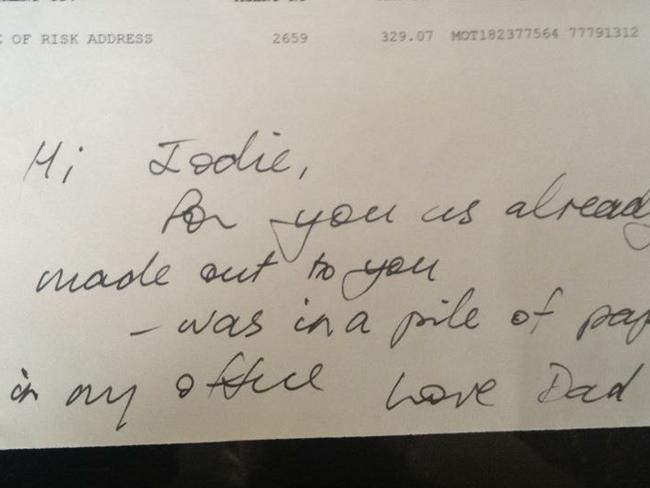 OF RISK ADDRESS 2659 329.07 MOT182377564 77791312
Hi Jodie,
For you us already
made out to you
- was in a pile of pap
in my office Love Dad